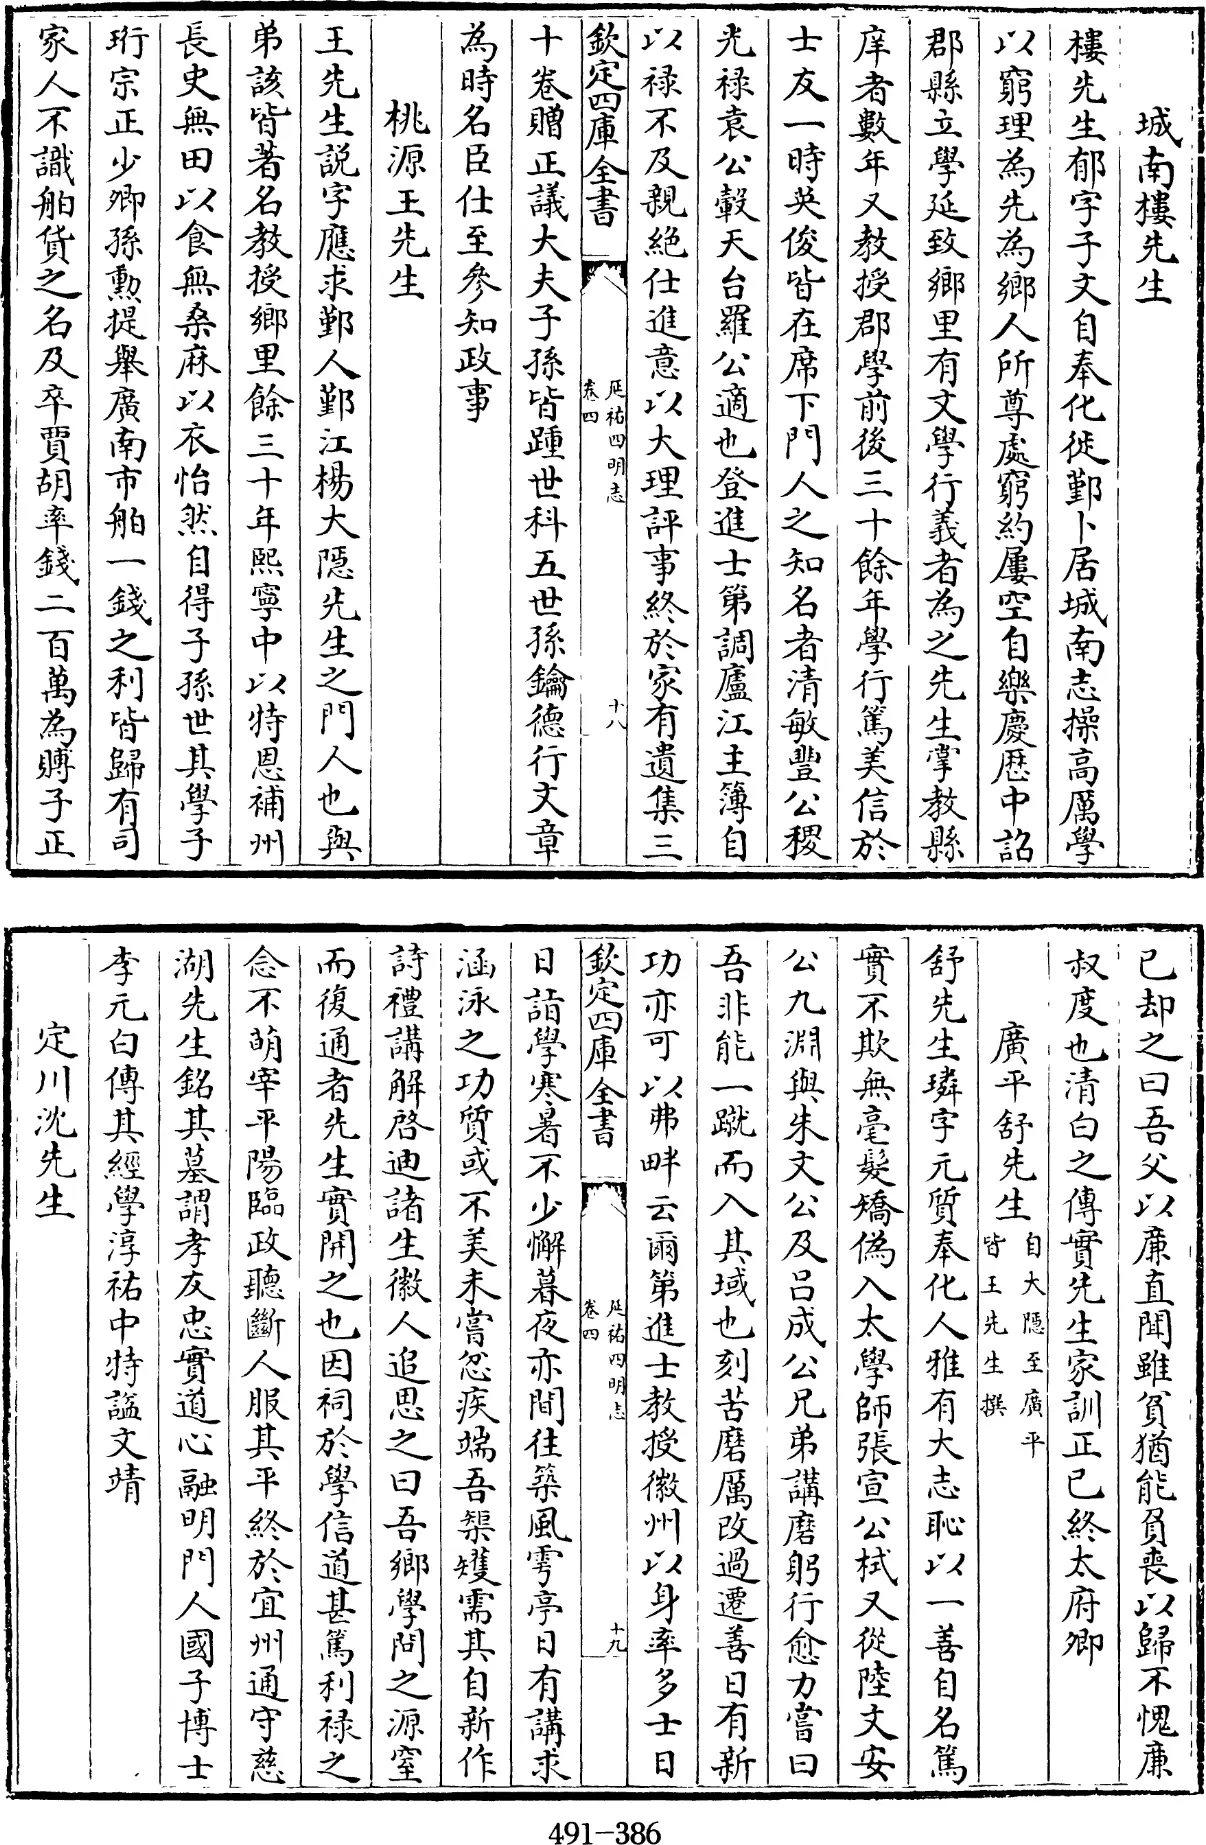 城南樓先生
樓先生郁字子文自奉化徙鄞卜居城南志操高厲學
以窮理為先為鄉人所尊處窮約屢空自樂慶厯中詔
郡縣立學延致鄉里有文學行義者為之先生掌教縣
庠者數年又教授郡學前後三十餘年學行篤美信於
士友一時英俊皆在席下門人之知名者清敏豐公稷
光禄袁公轂天台羅公適也登進士第調廬江主簿自
以禄不及親絶仕進意以大理評事終於家有遺集三
欽定四庫全書
延祐四明志
卷四
十八
十卷贈正議大夫子孫皆踵世科五世孫鑰德行文章
為時名臣仕至參知政事
桃源王先生
王先生説字應求鄞人鄞江楊大隠先生之門人也與
弟該皆著名教授鄉里餘三十年熙寧中以特恩補州
長史無田以食無桑麻以衣怡然自得子孫世其學子
珩宗正少卿孫勲提舉廣南市舶一錢之利皆歸有司
家人不識舶貨之名及卒賈胡率錢二百萬為賻子正
已却之曰吾父以廉直聞雖貧猶能負喪以歸不愧廉
叔度也清白之傳實先生家訓正已終太府卿
廣平舒先生
自大隠至廣平
皆王先生撰
舒先生璘字元質奉化人雅有大志恥以一善自名篤
實不欺無毫髮矯偽入太學師張宣公栻又從陸文安
公九淵與朱文公及吕成公兄弟講磨躬行愈力嘗曰
吾非能一蹴而入其域也刻苦磨厲改過遷善日有新
功亦可以弗畔云爾第進士教授徽州以身率多士日
欽定四庫全書
延祐四明志
卷四
十九
日詣學寒暑不少懈暮夜亦間往築風雩亭日有講求
涵泳之功質或不美未嘗忽疾端吾榘矱需其自新作
詩禮講解啓迪諸生徽人追思之曰吾鄉學問之源窒
而復通者先生實開之也因祠於學信道甚篤利禄之
念不萌宰平陽臨政聽斷人服其平終於宜州通守慈
湖先生銘其墓謂孝友忠實道心融明門人國子博士
李元白傳其經學淳祐中特諡文靖
定川沈先生
491-386